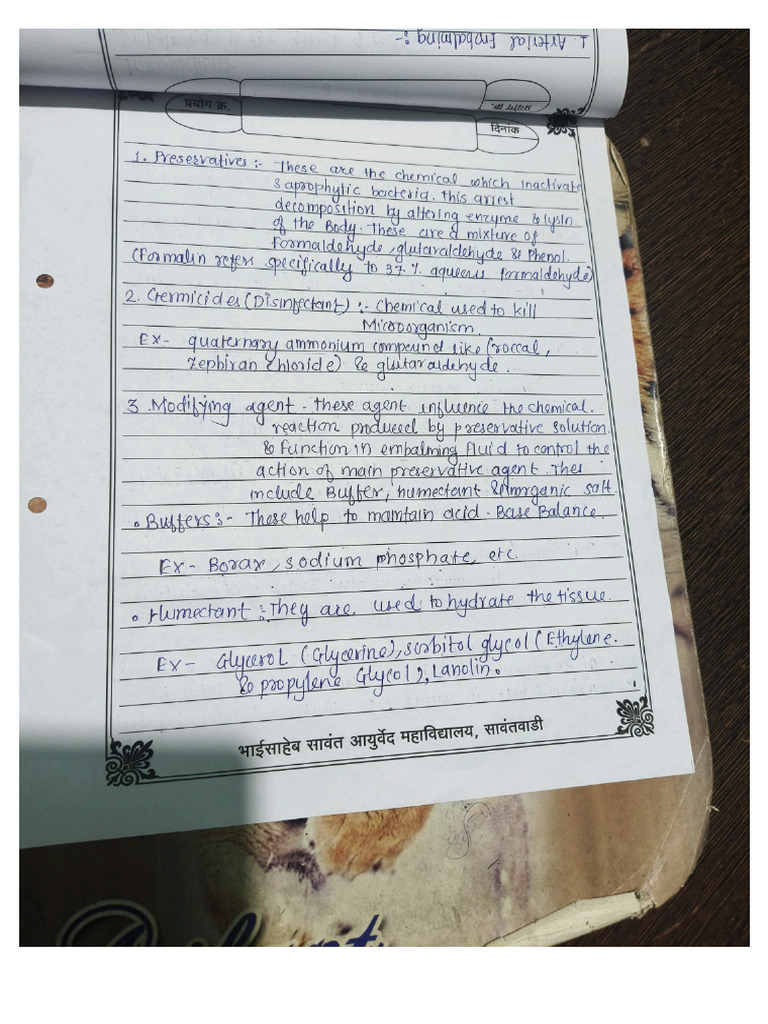 1. Arterial Embalming :-
प्रयोग क्र.
प्रयोग क्र.
दिनांक
1. Preservatives :- These are the chemical which inactivate
saprophytic bacteria. this arrest
decomposition by altering enzyme & lysin
of the Body. These are a mixture of
formaldehyde, glutaraldehyde & Phenol.
(Formalin refers specifically to 37 % aqueous formaldehyde)
2. Germicides (Disinfectant) :- Chemical used to kill
Microorganism.
Ex- quaternary ammonium compound like (roccal,
Zephiran chloride) & glutaraldehyde.
3. Modifying agent - these agent influence the chemical.
reaction produced by preservative solution
& function in embalming fluid to control the
action of main preservative agent. Thes
include Buffer, humectant & inorganic salt.
• Buffers :- These help to maintain acid - Base Balance.
Ex - Borax, sodium phosphate, etc.
• Humectant :- They are used to hydrate the tissue.
Ex - Glycerol (Glycerine), sorbitol glycol (Ethylene.
& propylene Glycol), Lanolin.
भाईसाहेब सावंत आयुर्वेद महाविद्यालय, सावंतवाडी